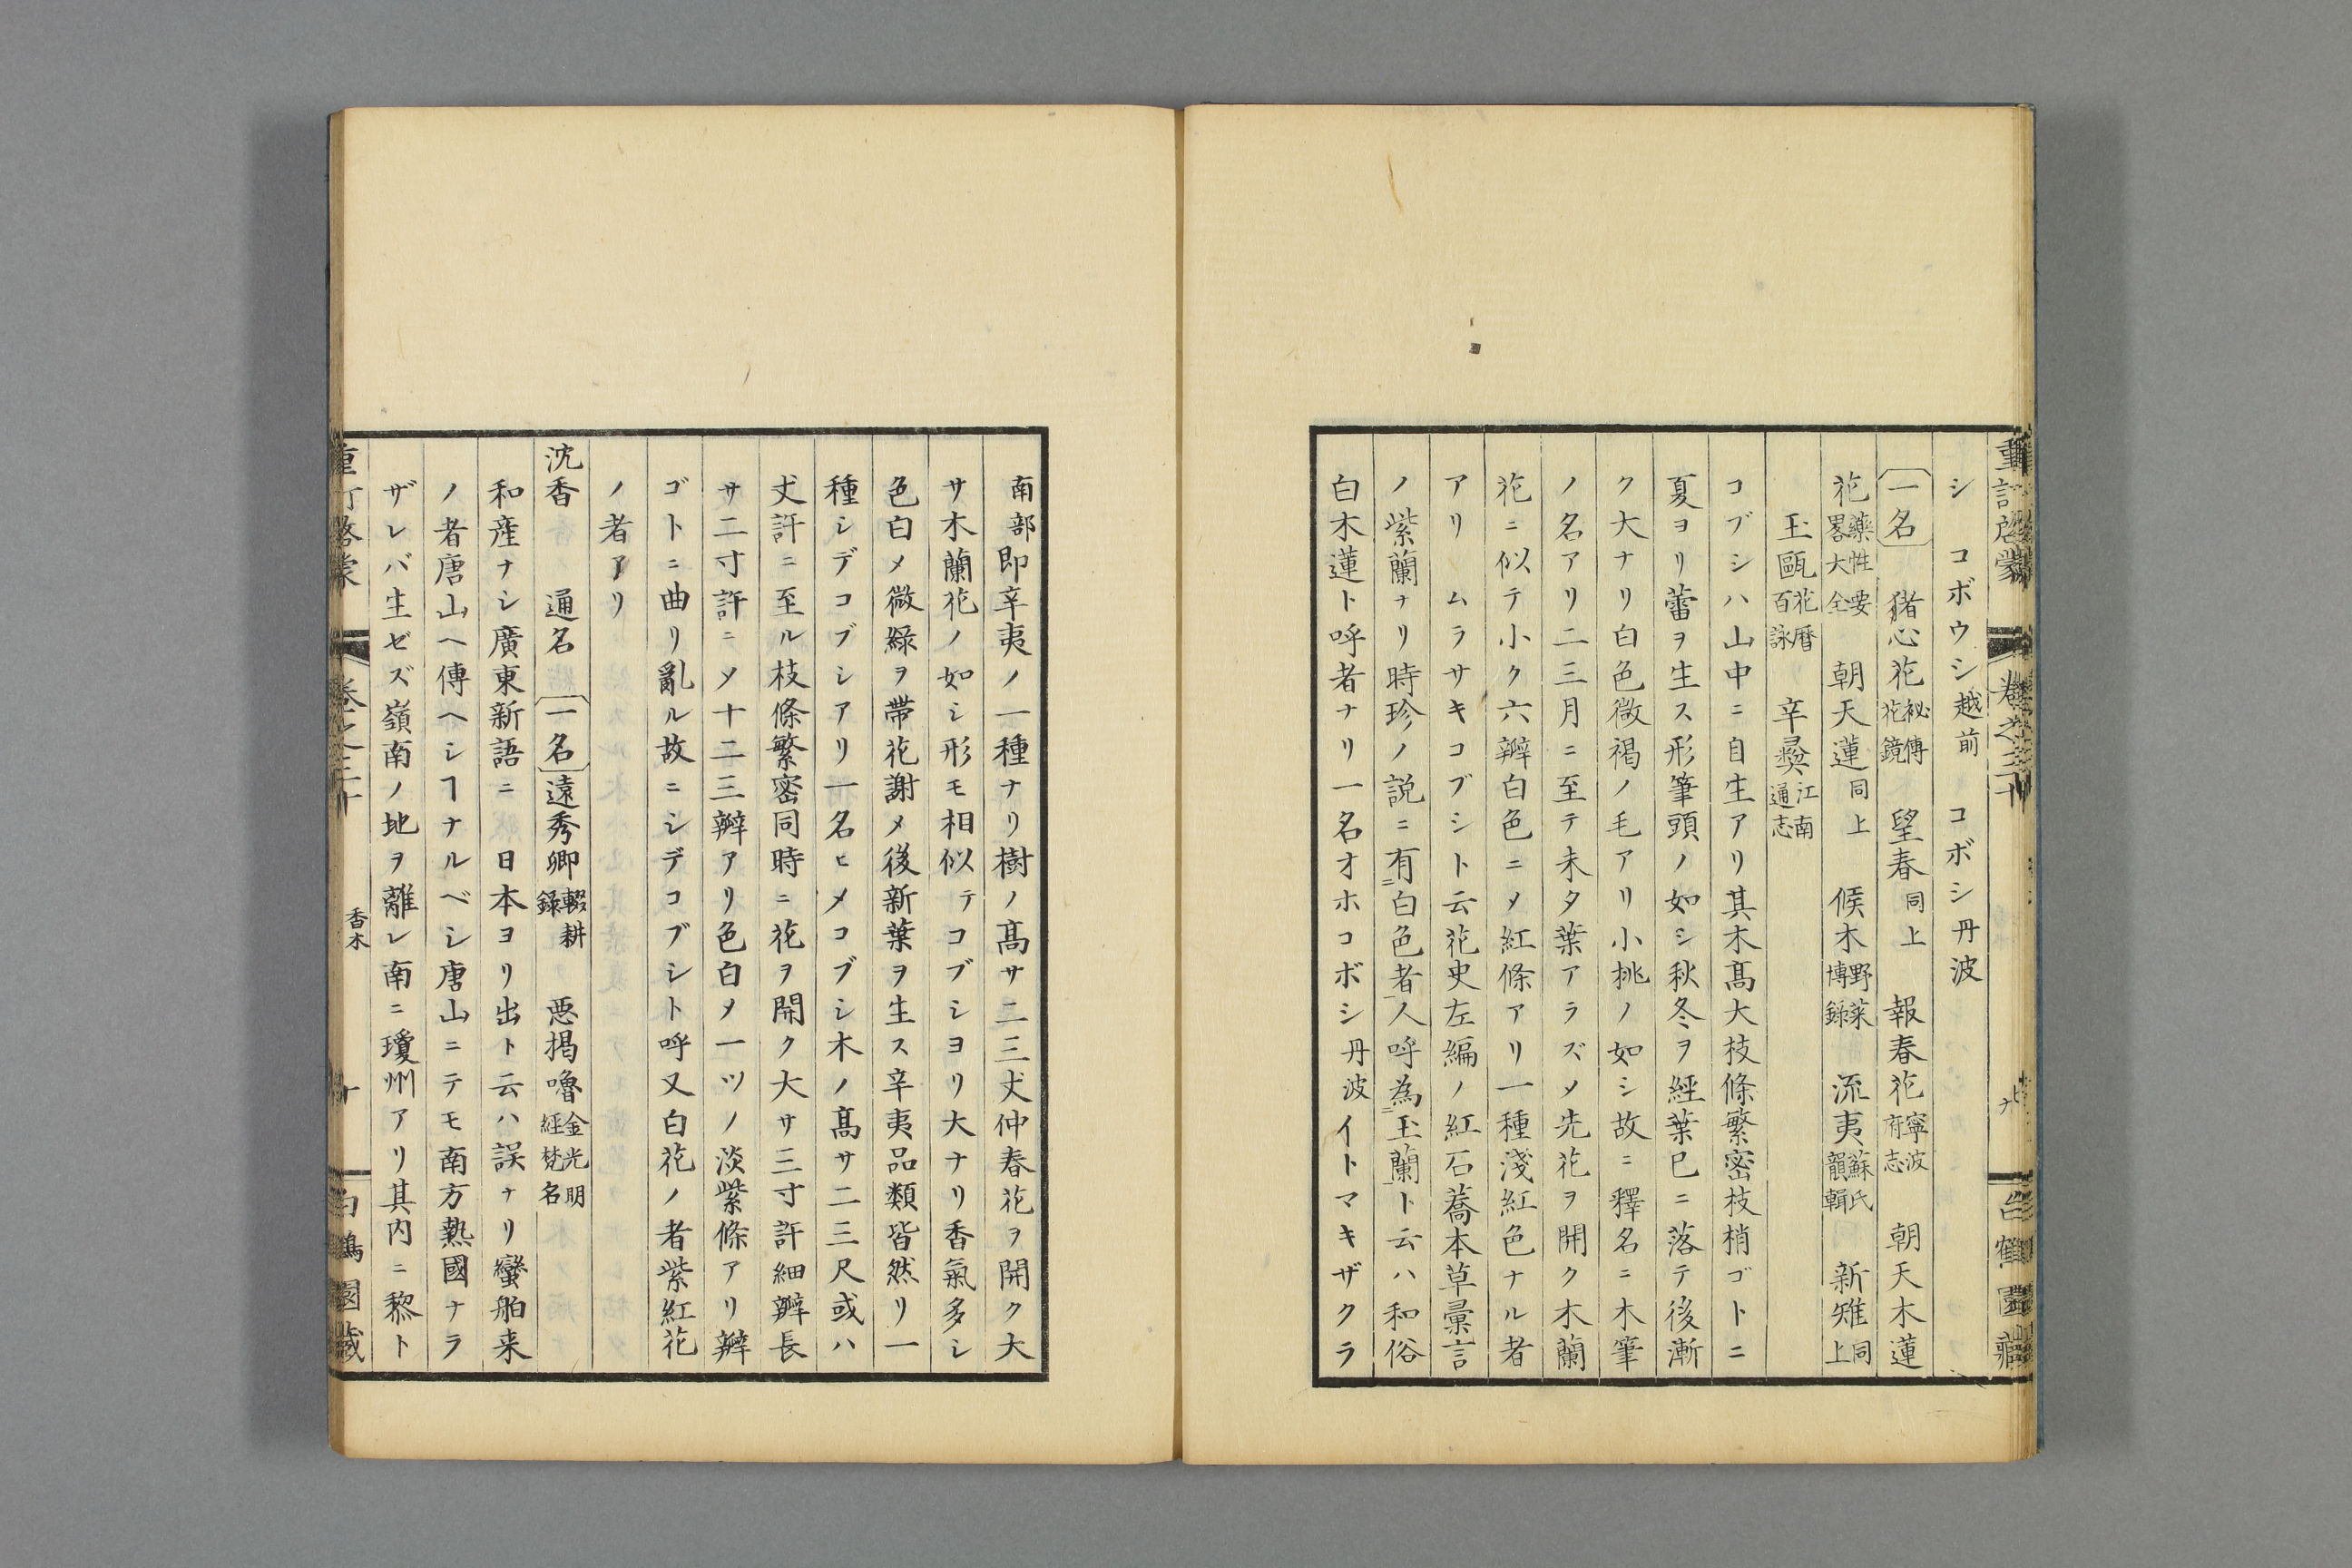 シ　コボウシ越前　コボシ丹波
一名　猪心花秘傳花鏡　望春同上　報春花寧波府志　朝天木蓮
花藥性要畧大全　朝天蓮同上　候木野菜博錄　流夷蘇氏韻輯　新雉同上
玉甌花暦百詠　辛彛江南通志
コブシハ山中ニ自生アリ其木髙大枝條繁密枝梢ゴトニ
夏ヨリ蕾ヲ生ス形筆頭ノ如シ秋冬ヲ經葉已ニ落テ後漸
ク大ナリ白色微褐ノ毛アリ小桃ノ如シ故ニ釋名ニ木筆
ノ名アリ二三月ニ至テ未タ葉アラズメ先花ヲ開ク木蘭
花ニ似テ小ク六瓣白色ニメ紅條アリ一種淺紅色ナル者
アリ　ムラサキコブシト云花史左編ノ紅石蕎本草彙言
ノ紫蘭ナリ時珍ノ説ニ有ニ白色者一人呼為ニ玉蘭一ト云ハ和俗
白木蓮ト呼者ナリ一名オホコボシ丹波イトマキザクラ
南部即辛夷ノ一種ナリ樹ノ髙サ二三丈仲春花ヲ開ク大
サ木蘭花ノ如シ形モ相似テコブシヨリ大ナリ香氣多シ
色白メ微綠ヲ帶花謝メ後新葉ヲ生ス辛夷品類皆然リ一
種シデコブシアリ一名ヒメコブシ木ノ髙サ二三尺或ハ
丈許ニ至ル枝條繁密同時ニ花ヲ開ク大サ三寸許細瓣長
サ二寸許ニメ十二三瓣アリ色白メ一ツノ淡紫條アリ瓣
ゴトニ曲リ亂ル故ニシデコブシト呼又白花ノ者紫紅花
ノ者アリ
沈香　通名　一名遠秀卿輟耕錄　悪掲嚕金光明經梵名
和産ナシ廣東新語ニ　日本ヨリ出ト云ハ誤ナリ蠻舶来
ノ者唐山ヘ傳ヘシヿナルベシ唐山ニテモ南方熱國ナラ
ザレバ生ゼズ嶺南ノ地ヲ離レ南ニ瓊州アリ其内ニ黎ト
香木　十